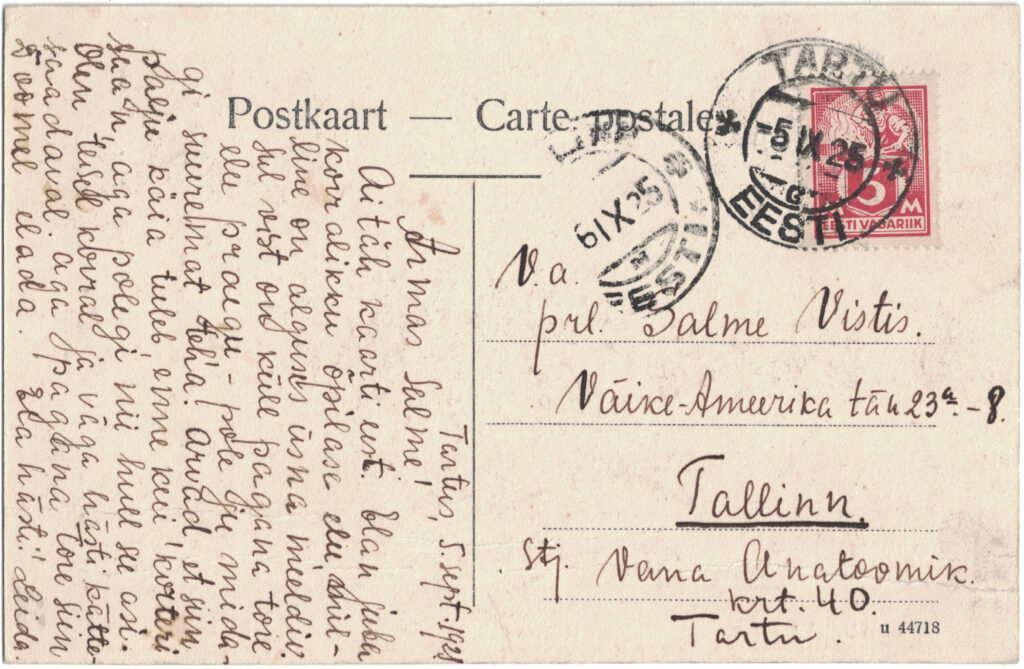 Postkaart — Carte postale
TARTU
5 IX 25
EESTI
6 IX 25
5 M
EESTI VABARIIK
V. a.
prl. Salme Vistis.
Väike-Ameerika tän 23a.-8.
Tallinn.
Stj. Vana Anatoomik.
krt. 40.
Tartu.
u 44718
Tartus, 5. sept. 1925
Armas Salme!
Aitäh kaarti eest. Elan juba
korralikku õpilase elu
line on alguses üsna meeldiv
Sul vist on küll pagana tore
elu praegu - pole ju mida-
gi suuremat teha. Arvad, et siin
palju käia tuleb enne kui korteri
saad, aga polegi nii hull se asi.
Olen teise korral ja väga hästi kätte-
saadaval. aga pagana tore siin
Toomel elada. Ela hästi! Leida.